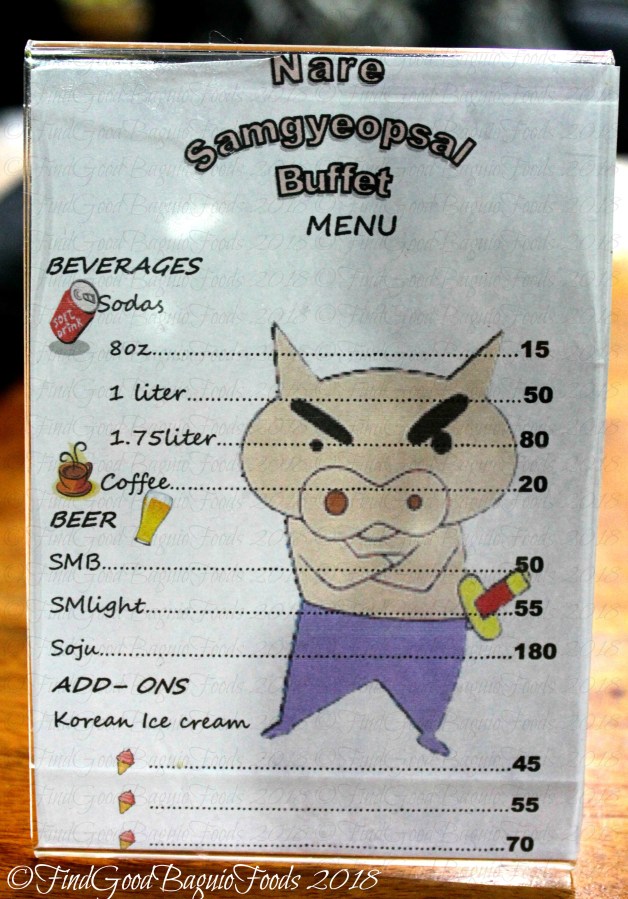 Nare
Samgyeopsal
Buffet
MENU
BEVERAGES
SOFT DRINK
Sodas
8oz...15
1 liter...50
1.75liter...80
Coffee...20
BEER
SMB...50
SMlight...55
Soju...180
ADD-ONS
Korean Ice cream
...45
...55
...70
©FindGoodBaguioFoods 2018